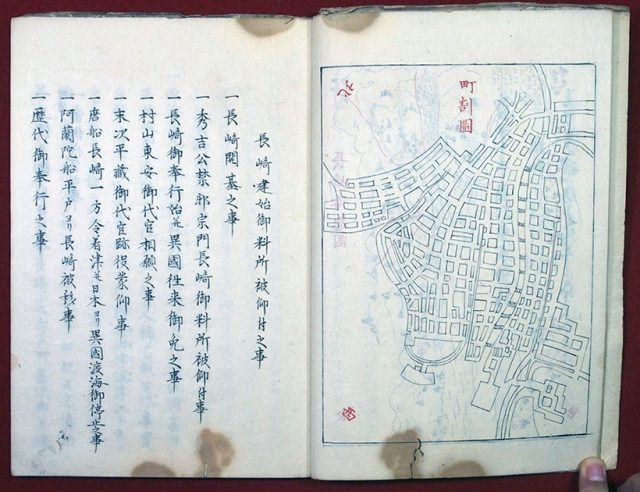 町割圖
北
長崎建始御料所被仰付之事
一長崎開基之事
一秀吉公禁邪宗門長崎御料所被仰付事
一長崎御奉行始并異國往来御免之事
一村山東安御代官相願之事
一末次平藏御代官跡役蒙仰事
一唐船長崎一方令着津并日本ヨリ異國渡海御停止之事
一阿蘭陀船平戸ヨリ長崎被移事
一歴代御奉行之事